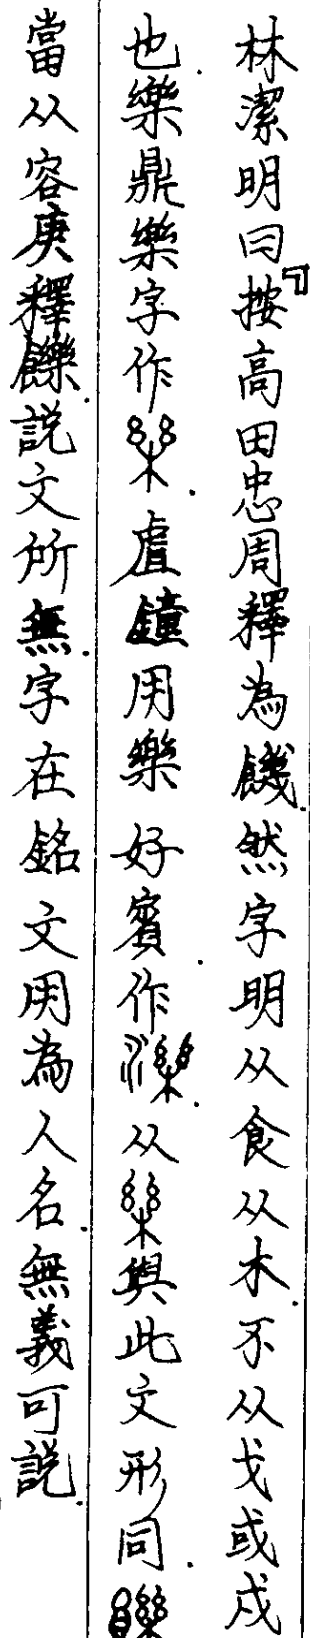 林潔明曰「按高田忠周釋為饑.然字明从食从木.不从戈或戍
也.樂鼎樂字作.虘鐘用樂好賓作.从與此文形同.
當从容庚釋䭥.說文所無.字在銘文用為人名.無義可說.